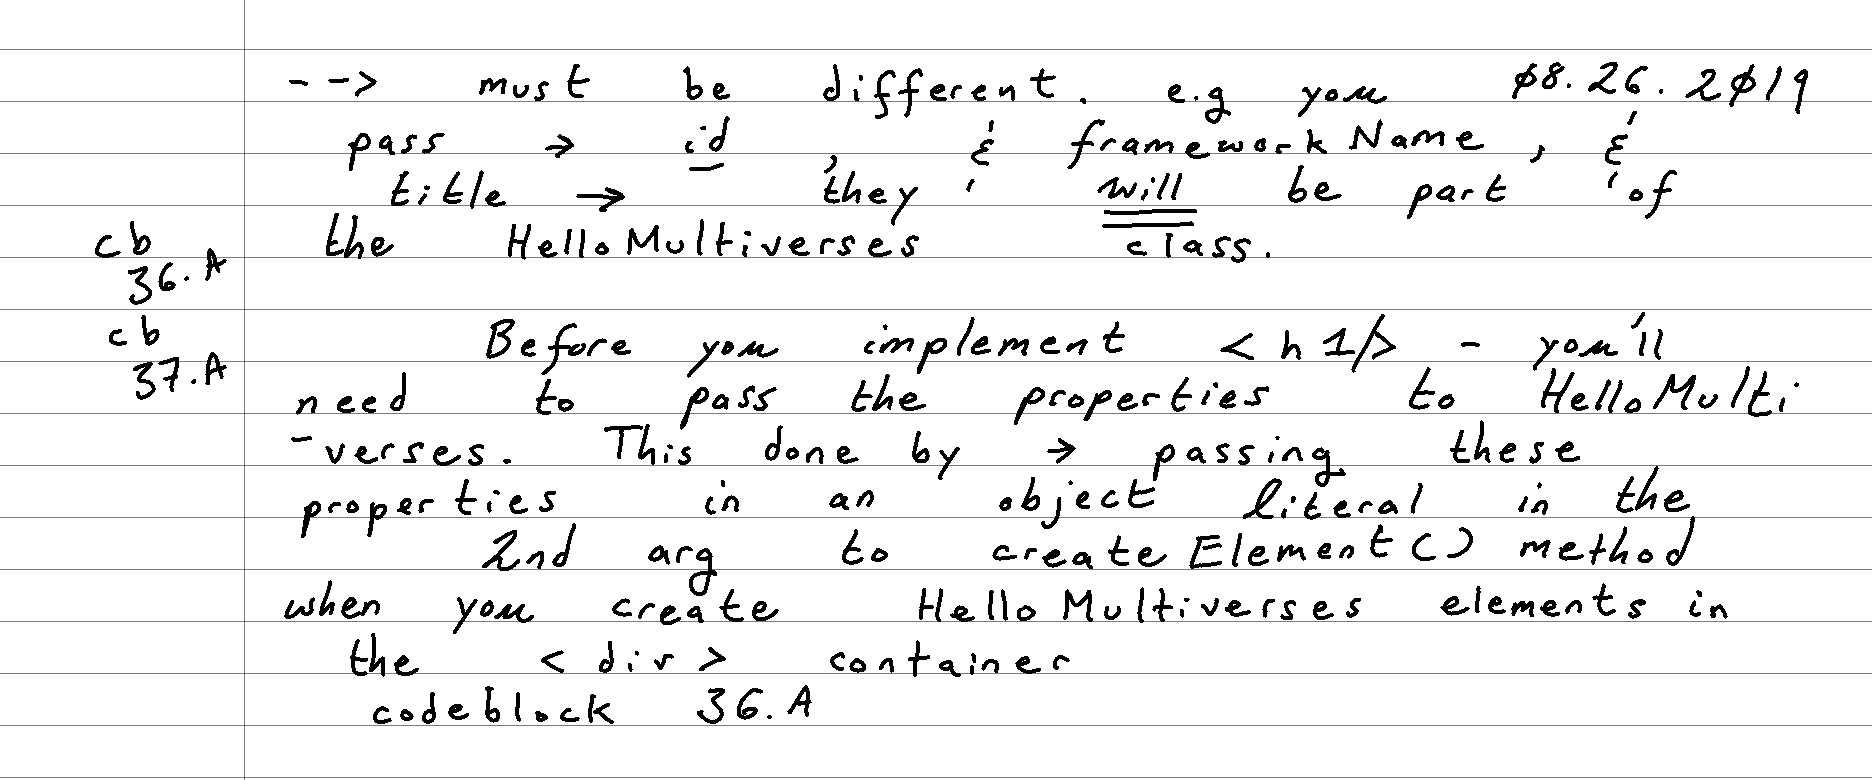 --> must be different. e.g you 08.26.2019
pass → id, & frameworkName, &
title → they will be part of
the HelloMultiverses class.
cb
36.A
cb
37.A
Before you implement <h1/> - you'll
need to pass the properties to HelloMulti
-verses. This done by → passing these
properties in an object literal in the
2nd arg to createElement() method
when you create HelloMultiverses elements in
the <div> container
codeblock 36.A